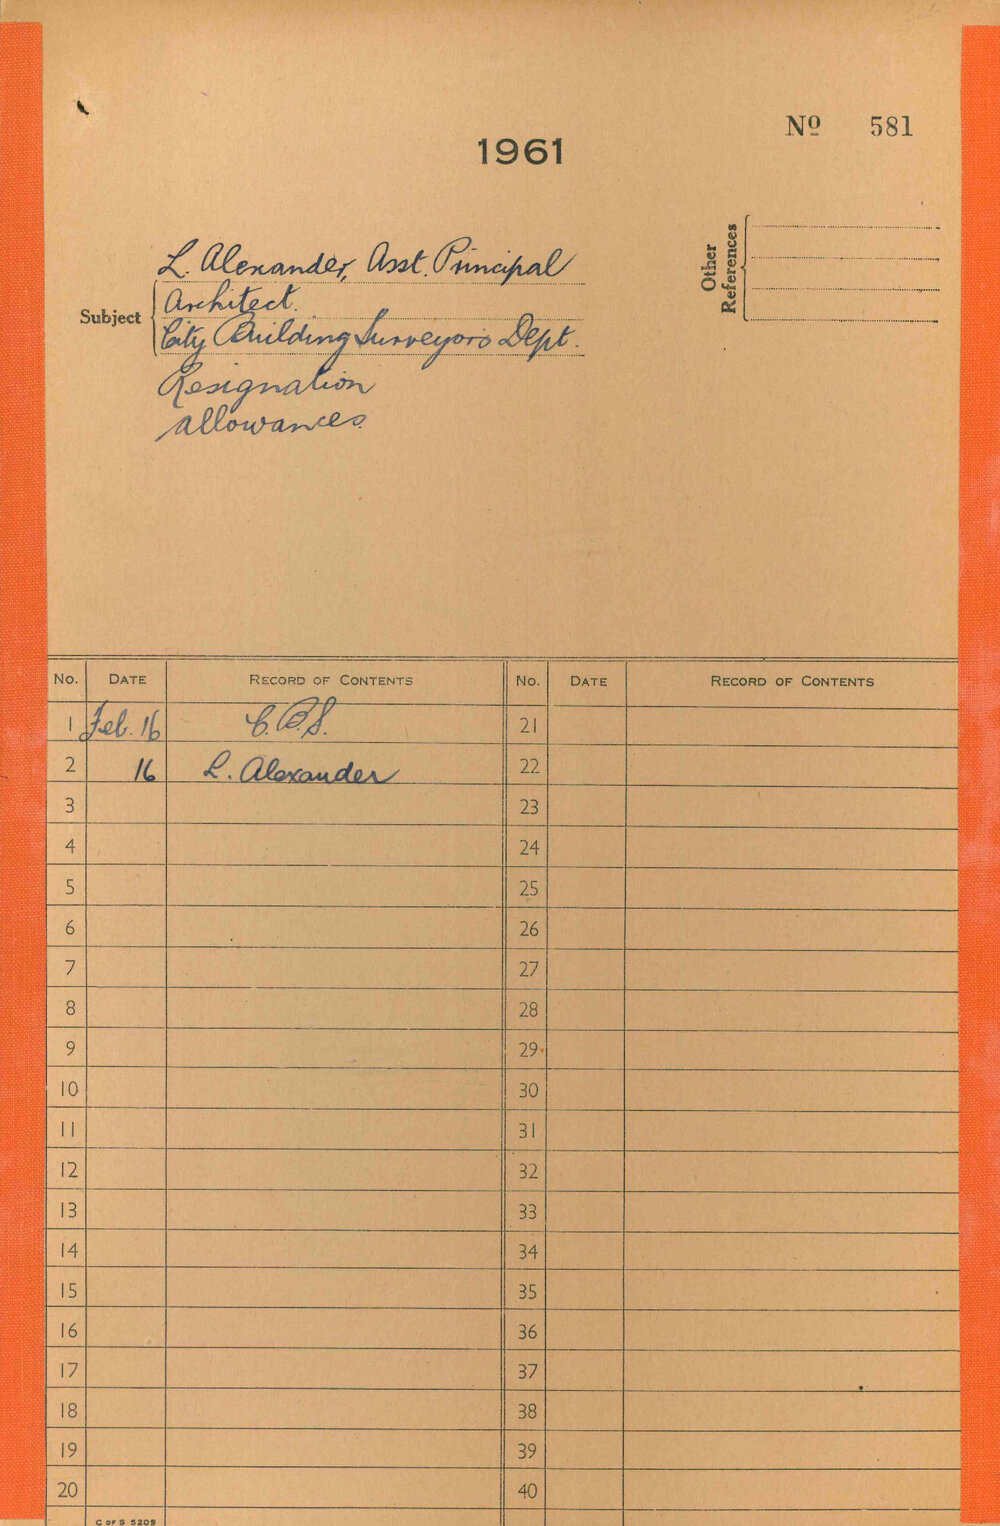 Nº 581
1961
Other References
Subject
L. Alexander, Asst. Principal
Architect.
City Building Surveyors Dept.
Resignation
allowances.
No. DATE RECORD OF CONTENTS No. DATE RECORD OF CONTENTS
1 Feb. 16 C.B.S. 21
2 16 L. Alexander 22
3 23
4 24
5 25
6 26
7 27
8 28
9 29
10 30
11 31
12 32
13 33
14 34
15 35
16 36
17 37
18 38
19 39
20 40
C OF S 5209